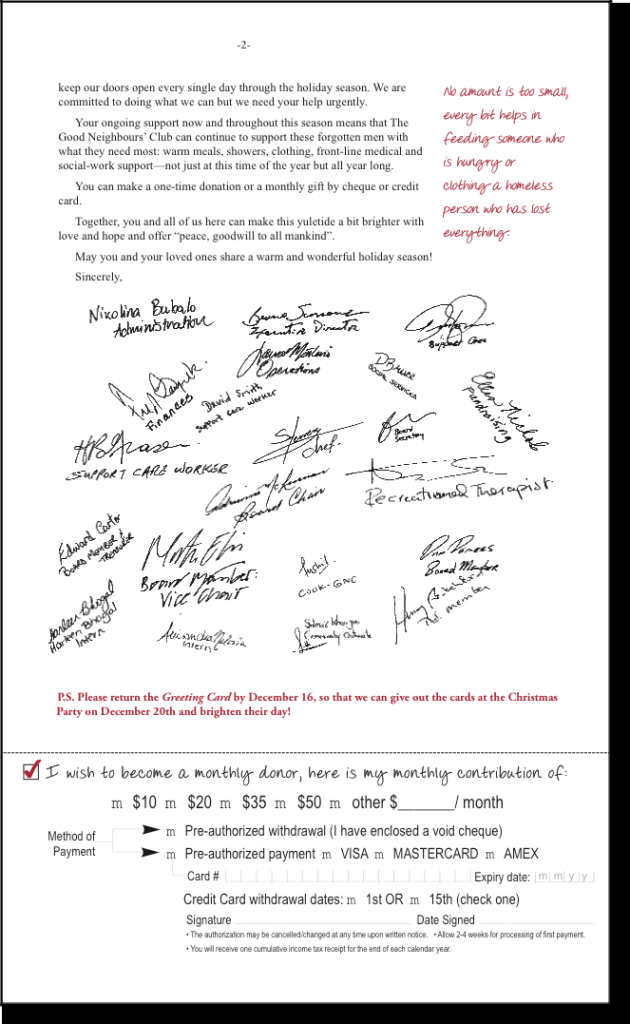 -2-
keep our doors open every single day through the holiday season. We are
committed to doing what we can but we need your help urgently.
Your ongoing support now and throughout this season means that The
Good Neighbours' Club can continue to support these forgotten men with
what they need most: warm meals, showers, clothing, front-line medical and
social-work support—not just at this time of the year but all year long.
You can make a one-time donation or a monthly gift by cheque or credit
card.
Together, you and all of us here can make this yuletide a bit brighter with
love and hope and offer “peace, goodwill to all mankind”.
May you and your loved ones share a warm and wonderful holiday season!
Sincerely,
No amount is too small,
every bit helps in
feeding someone who
is hungry or
clothing a homeless
person who has lost
everything.
Nixolina Bubalo
Administration
Executive Director
Support Care
Operations
Finances
David Smith
support care worker
Social Services
Ellen Nichols
Fundraising
SUPPORT CARE WORKER
Chef
Board
Secretary
Board Chair
Recreational Therapist
Edward Carter
BOARD MEMBER &
TREASURER
Board Member:
Vice Chair
COOK-GNC
Board Member
Harleen Bhogal
Harleen Bhogal
Intern
Intern
Community Outreach
Bd. member
P.S. Please return the Greeting Card by December 16, so that we can give out the cards at the Christmas
Party on December 20th and brighten their day!
I wish to become a monthly donor, here is my monthly contribution of:
m $10 m $20 m $35 m $50 m other $______/ month
Method of
Payment
m Pre-authorized withdrawal (I have enclosed a void cheque)
m Pre-authorized payment m VISA m MASTERCARD m AMEX
Card # Expiry date: m m y y
Credit Card withdrawal dates: m 1st OR m 15th (check one)
Signature Date Signed
• The authorization may be cancelled/changed at any time upon written notice. • Allow 2-4 weeks for processing of first payment.
• You will receive one cumulative income tax receipt for the end of each calendar year.